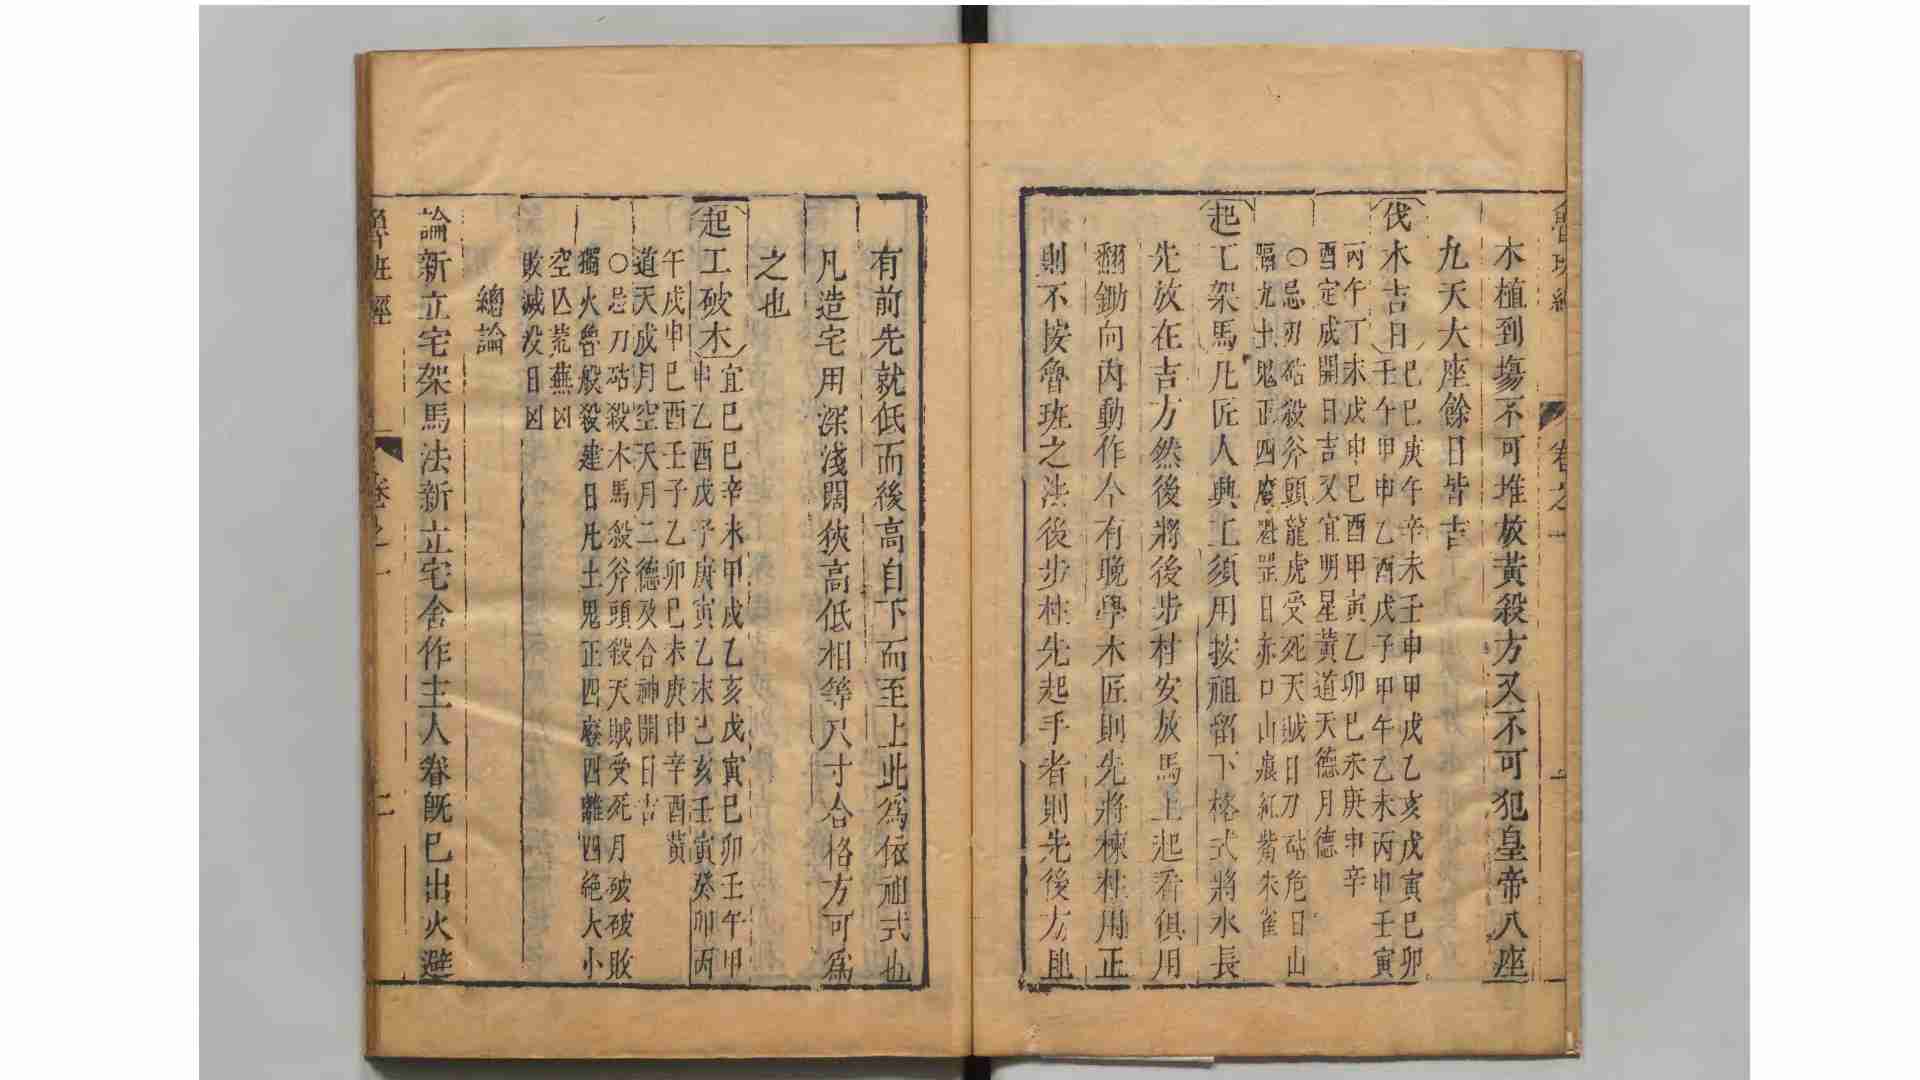 魯班經 卷之一
木植到場不可堆放黃殺方又不可犯皇帝八座
九天大座餘日皆吉
伐木吉日
己巳庚午辛未壬申甲戌乙亥戊寅己卯
壬午甲申乙酉戊子甲午乙未丙申壬寅
丙午丁未戊申己酉甲寅乙卯己未庚申辛
酉定成開日吉又宜明星黃道天德月德
○忌刀砧殺斧頭龍虎受死天賊日刀砧危日山
隔九土鬼正四廢魁罡日赤口山痕紅觜朱雀
起工架馬凡匠人興工須用按祖留下格式將水長
先放在吉方然後將後步柱安放馬上起看俱用
翻鋤向內動作今有晚學木匠則先將棟柱用正
則不按魯班之法後步柱先起手者則先後方且
有前先就低而後高自下而至上此爲依祖式也
凡造宅用深淺闊狹高低相等尺寸合格方可爲
之也
起工破木
宜己巳辛未甲戌乙亥戊寅己卯壬午甲
申乙酉戊子庚寅乙未己亥壬寅癸卯丙
午戊申己酉壬子乙卯己未庚申辛酉黃
道天成月空天月二德及合神開日吉
○忌刀砧殺木馬殺斧頭殺天賊受死月破破敗
獨火魯般殺建日凡土鬼正四廢四離四絕大小
空亡荒蕪凶
敗滅没日凶
總論
論新立宅架馬法新立宅舍作主人眷既已出火避
魯班經 卷之一 二